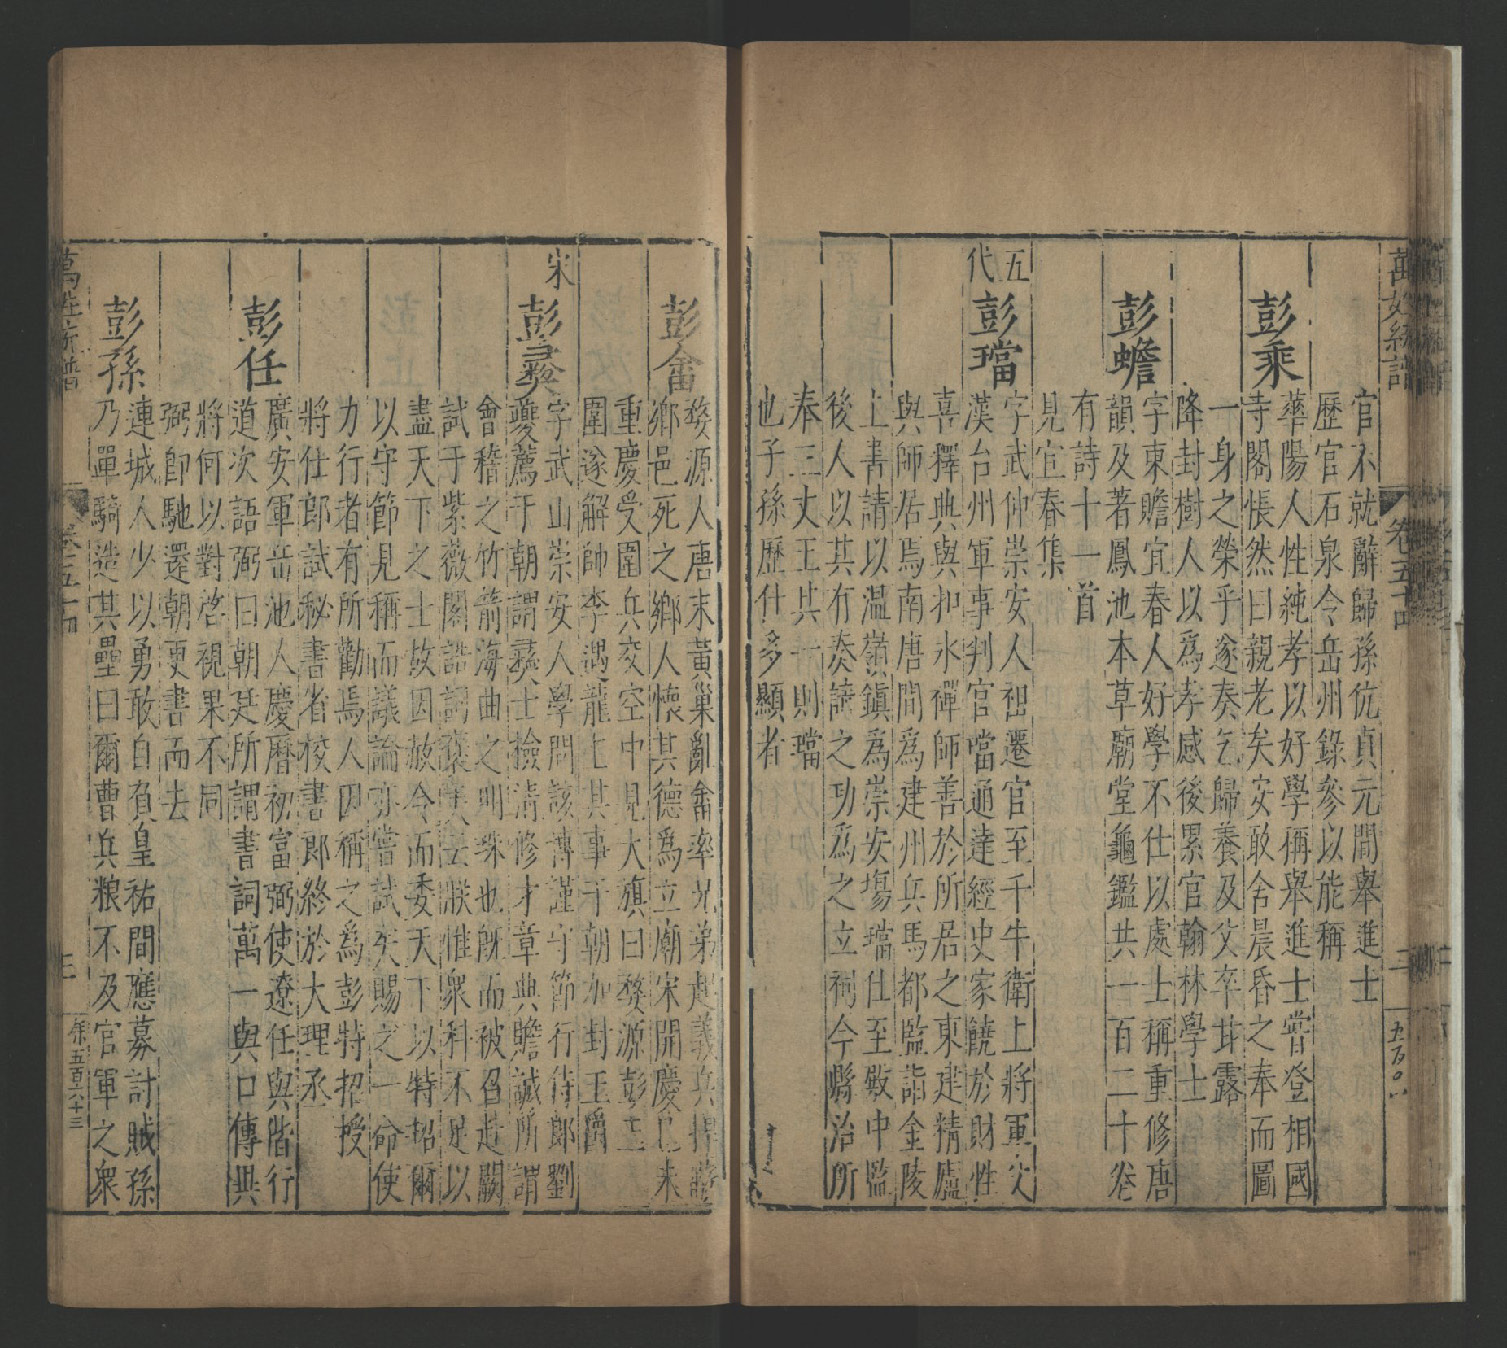 萬姓統譜
卷五十四
官不就辭歸孫伉貞元間舉進士
歷官石泉令岳州錄參以能稱
彭乘
華陽人性純孝以好學稱舉進士嘗登相國
寺閣悵然曰親老矣安敢舍晨昏之奉而圖
一身之榮乎遂奏乞歸養及父卒甘露
降封樹人以爲孝感後累官翰林學士
彭蟾
字東瞻宜春人好學不仕以處士稱重修唐
韻及著鳳池本草廟堂龜鑑共一百二十卷
有詩十一首
見宜春集
五代
彭璫
字武仲崇安人祖遷官至千牛衛上將軍父
漢台州軍事判官璫通達經史家饒於財性
喜釋典與扣氷禪師善於所居之東建精廬
與師居焉南唐間爲建州兵馬都監詣金陵
上書請以温嶺鎭爲崇安塲璫仕至殿中監
後人以其有奏請之功爲之立祠今縣治所
奉三丈王其一則璫
也子孫歷仕多顯者
彭畬
婺源人唐末黃巢亂畬率兄弟起義兵捍
鄉邑死之鄉人懷其德爲立廟宋開慶己未
重慶受圍兵交空中見大旗曰婺源彭王
圍遂解帥李遇龍上其事于朝加封王爵
宋
彭彛
字武山崇安人學問該博謹守節行侍郎劉
夔薦于朝謂彛士撿清修才章典贍誠所謂
會稽之竹箭海曲之明珠也旣而被召赴闕
試于紫薇閣誥詞褒美云朕惟衆科不足以
盡天下之士故因赦令而委天下以特招爾
以守節見稱而議論亦嘗試矣賜之一命使
力行者有所勸焉人因稱之爲彭特招授
將仕郎試秘書省校書郎終於大理丞
彭任
廣安軍岳池人慶曆初富弼使遼任與偕行
道次語弼曰朝廷所謂書詞萬一與口傳異
將何以對啓視果不同
弼卽馳還朝更書而去
彭孫
連城人少以勇敢自負皇祐間應募討賊孫
乃單騎造其壘曰爾曹兵粮不及官軍之衆
萬姓統譜
卷五十四
三